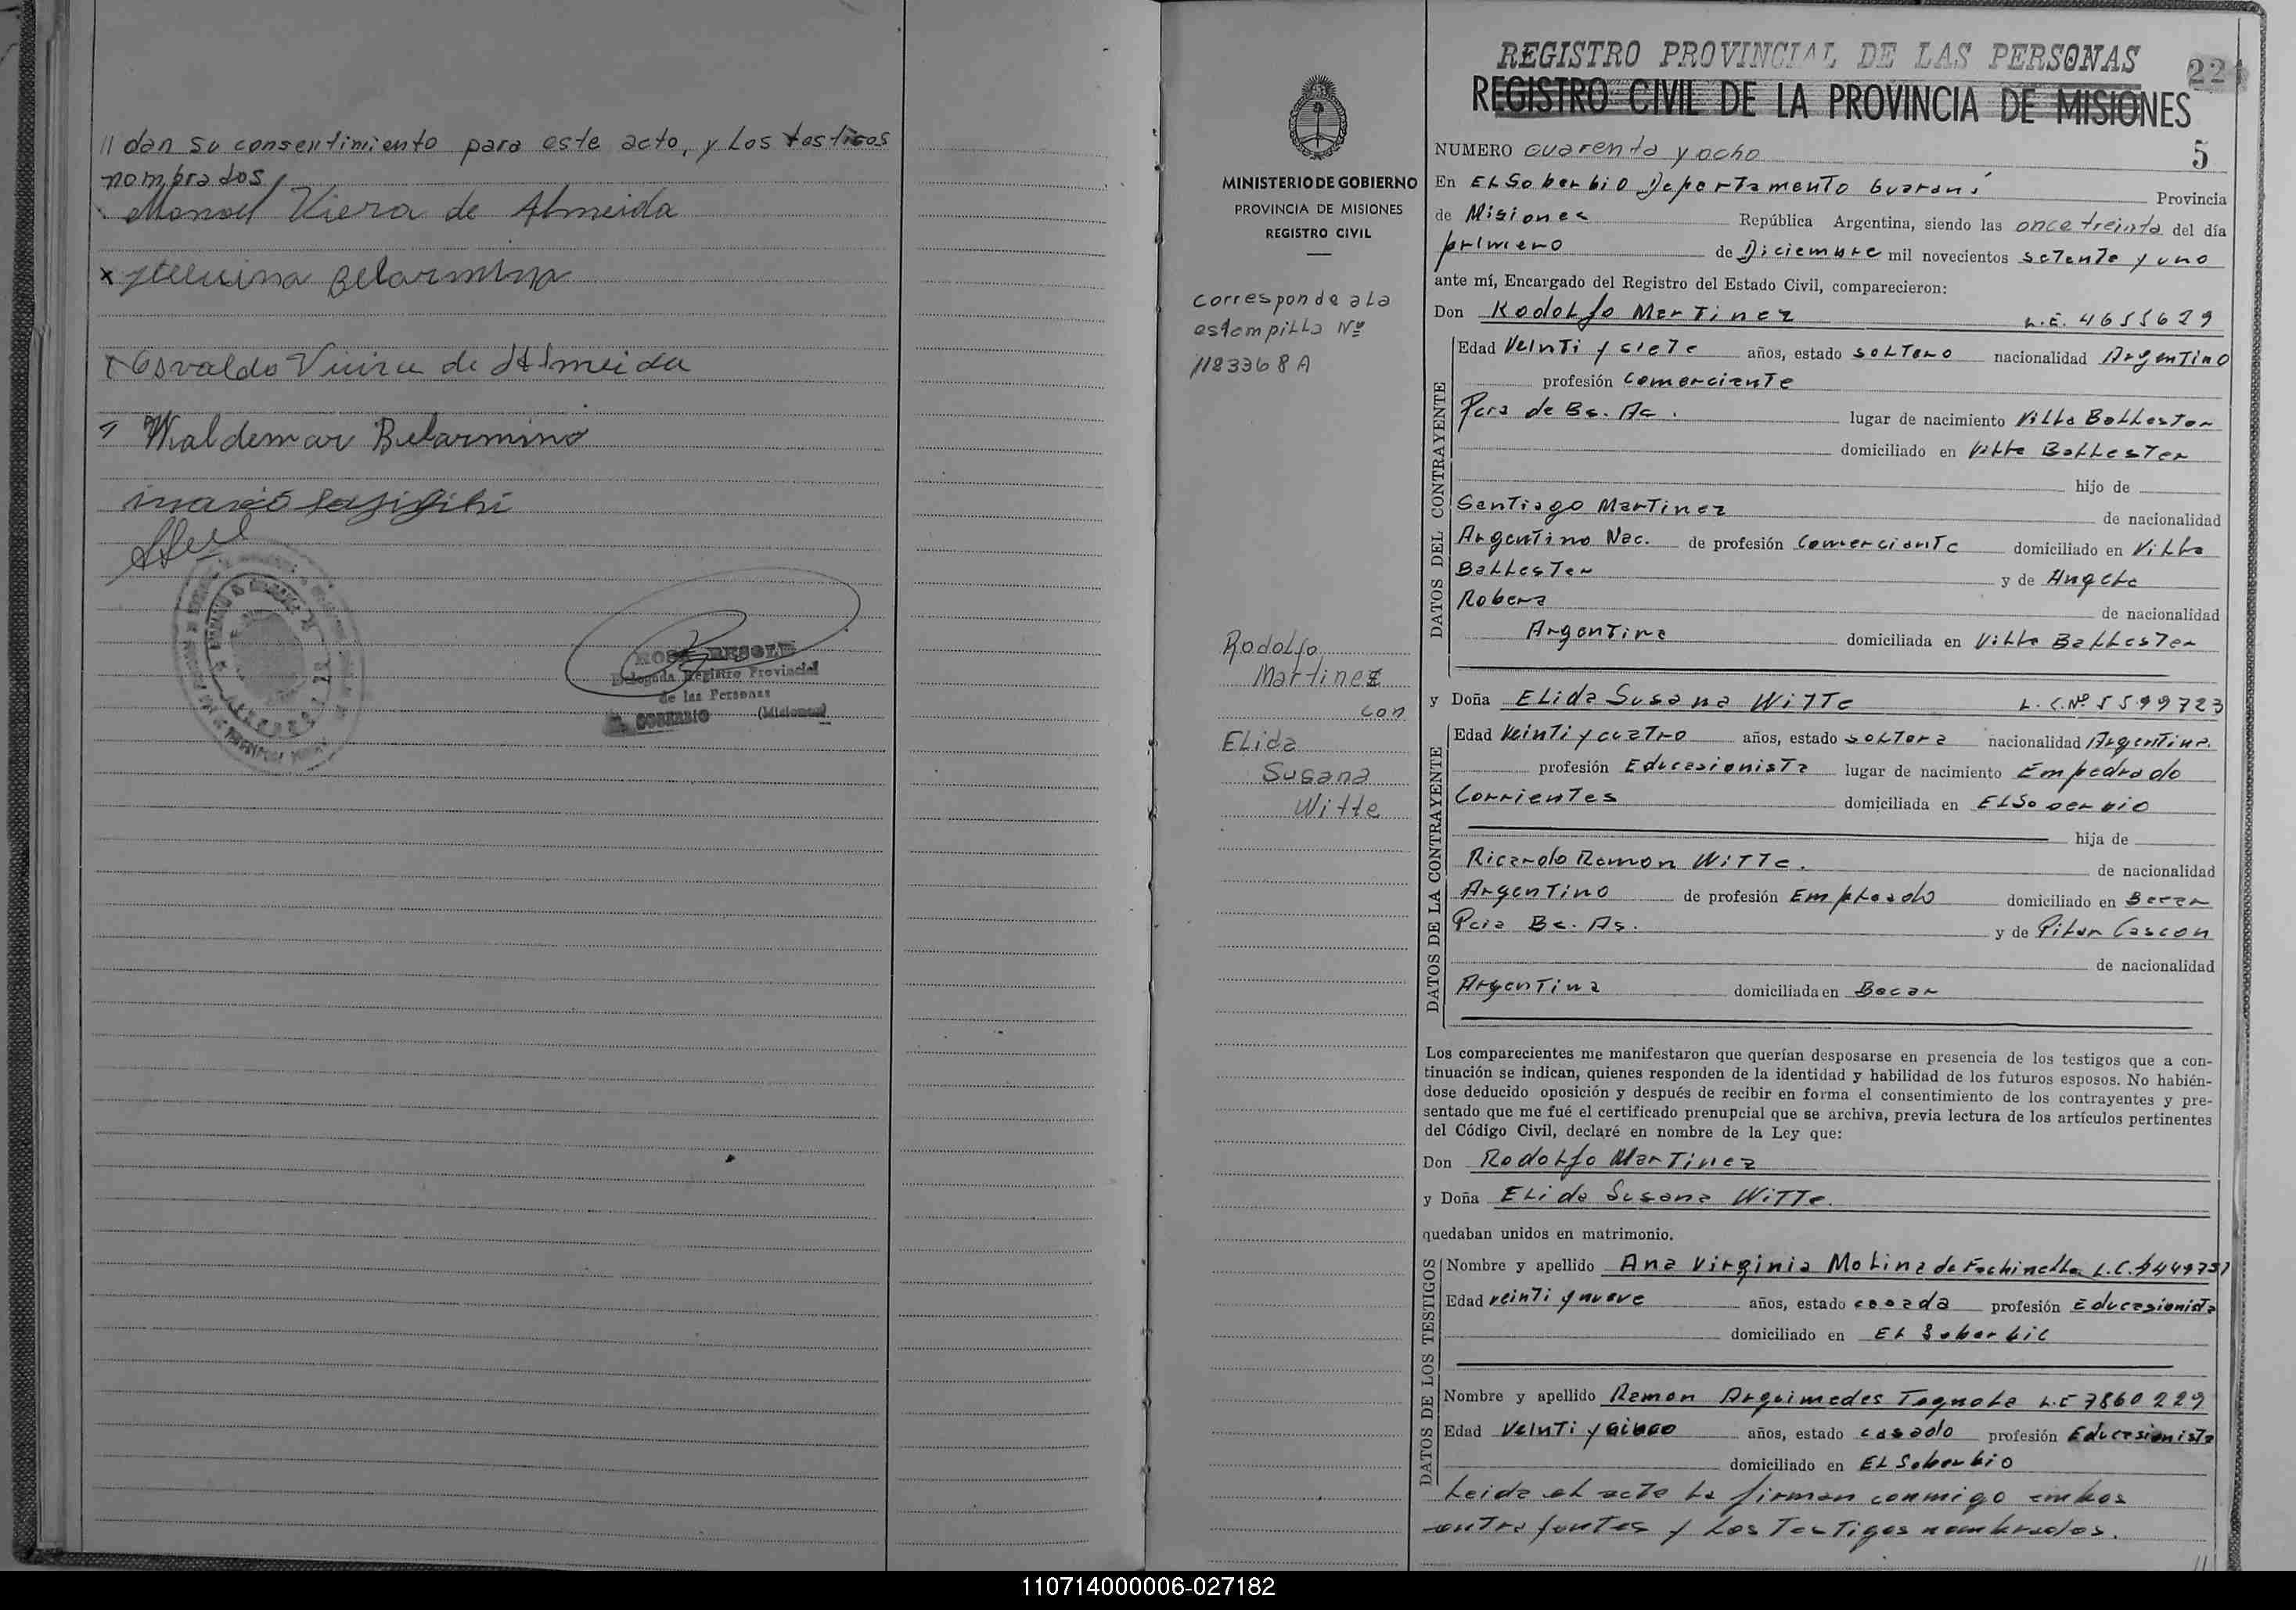 // dan su consentimiento para este acto, y los testigos
nombrados
Manoel Viera de Almeida
x Belarmina
Osvaldo Vieira de Almeida
Waldemar Belarmino
ROSA
Delegada Registro Provincial
de las Personas
EL SOBERBIO (Misiones)
MINISTERIO DE GOBIERNO
PROVINCIA DE MISIONES
REGISTRO CIVIL
Corresponde a la
estampilla Nº
1183368 A
Rodolfo
Martinez
con
Elida
Susana
Witte
REGISTRO PROVINCIAL DE LAS PERSONAS
22
REGISTRO CIVIL DE LA PROVINCIA DE MISIONES
NUMERO cuarenta y ocho 5
En El Soberbio Departamento Guaraní Provincia
de Misiones República Argentina, siendo las once treinta del día
primero de Diciembre mil novecientos setenta y uno
ante mí, Encargado del Registro del Estado Civil, comparecieron:
Don Rodolfo Martinez L.E. 4655629
DATOS DEL CONTRAYENTE
Edad Veinti y siete años, estado soltero nacionalidad Argentino
profesión Comerciante
Pcia de Bs. As. lugar de nacimiento Villa Ballester
domiciliado en Villa Ballester
hijo de
Santiago Martinez de nacionalidad
Argentino Nac. de profesión Comerciante domiciliado en Villa
Ballester y de Angela
Robera de nacionalidad
Argentina domiciliada en Villa Ballester
y Doña Elida Susana Witte L.C.Nº 5599723
DATOS DE LA CONTRAYENTE
Edad Veinti y cuatro años, estado soltera nacionalidad Argentina.
profesión Educasionista lugar de nacimiento Empedrado
Corrientes domiciliada en El Soberbio
hija de
Ricardo Ramon Witte. de nacionalidad
Argentino de profesión Empleado domiciliado en Becar
Pcia Bs. As. y de Pilar Cascon
de nacionalidad
Argentina domiciliada en Becar
Los comparecientes me manifestaron que querían desposarse en presencia de los testigos que a con-
tinuación se indican, quienes responden de la identidad y habilidad de los futuros esposos. No habién-
dose deducido oposición y después de recibir en forma el consentimiento de los contrayentes y pre-
sentado que me fué el certificado prenupcial que se archiva, previa lectura de los artículos pertinentes
del Código Civil, declaré en nombre de la Ley que:
Don Rodolfo Martinez
y Doña Elida Susana Witte.
quedaban unidos en matrimonio.
DATOS DE LOS TESTIGOS
Nombre y apellido Ana Virginia Molina de Fachinello L.C. 4449751
Edad veinti y nueve años, estado casada profesión Educasionista
domiciliado en El Soberbio
Nombre y apellido Ramon Arquimedes Tognola L.E 7860229
Edad Veinti y cinco años, estado casado profesión Educasionista
domiciliado en El Soberbio
Leida el acta la firman conmigo ambos
contrayentes y los Testigos nombrados.
//
110714000006-027182